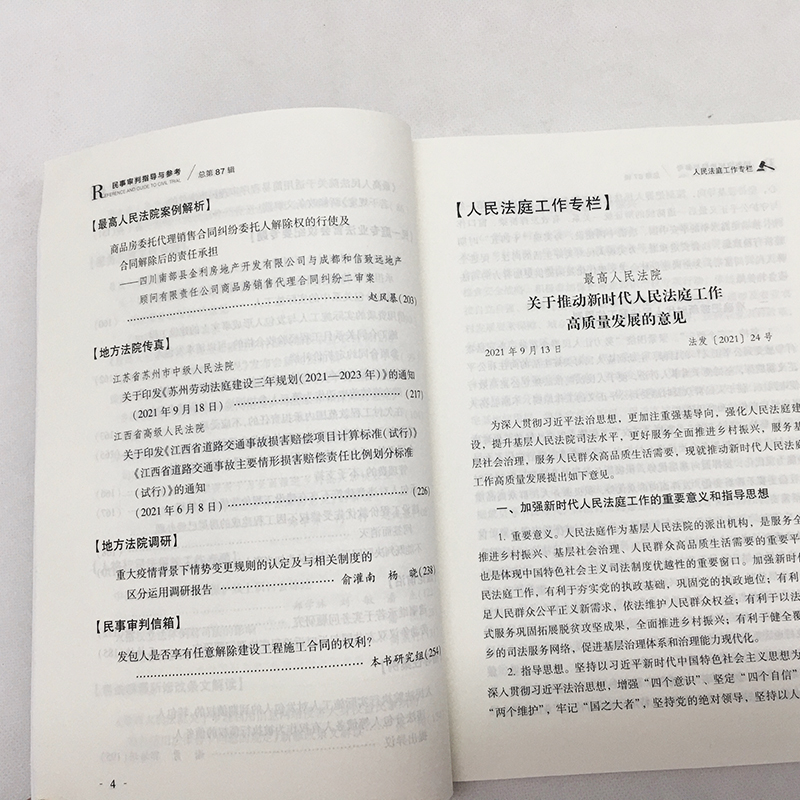 民事审判指导与参考
REFERENCE AND GUIDE TO CIVIL TRIAL
总第87辑
【最高人民法院案例解析】
商品房委托代理销售合同纠纷委托人解除权的行使及
合同解除后的责任承担
——四川南部县金利房地产开发有限公司与成都和信致远地产
顾问有限责任公司商品房销售代理合同纠纷二审案
赵风暴(203)
【地方法院传真】
江苏省苏州市中级人民法院
关于印发《苏州劳动法庭建设三年规划(2021—2023年)》的通知
(2021年9月18日)(217)
江西省高级人民法院
关于印发《江西省道路交通事故损害赔偿项目计算标准(试行)》
《江西省道路交通事故主要情形损害赔偿责任比例划分标准
(试行)》的通知
(2021年6月8日)(226)
【地方法院调研】
重大疫情背景下情势变更规则的认定及与相关制度的
区分运用调研报告 俞灌南 杨晓(238)
【民事审判信箱】
发包人是否享有任意解除建设工程施工合同的权利?
本书研究组(254)
- 4 -
人民法庭工作专栏
【人民法庭工作专栏】
最高人民法院
关于推动新时代人民法庭工作
高质量发展的意见
2021年9月13日 法发〔2021〕24号
为深入贯彻习近平法治思想,更加注重强基导向,强化人民法庭建
设,提升基层人民法院司法水平,更好服务全面推进乡村振兴,服务基
层社会治理,服务人民群众高品质生活需要,现就推动新时代人民法庭
工作高质量发展提出如下意见。
一、加强新时代人民法庭工作的重要意义和指导思想
1. 重要意义。人民法庭作为基层人民法院的派出机构,是服务全
推进乡村振兴、基层社会治理、人民群众高品质生活需要的重要平
也是体现中国特色社会主义司法制度优越性的重要窗口。加强新时
民法庭工作,有利于夯实党的执政基础,巩固党的执政地位;有利
足人民群众公平正义新需求,依法维护人民群众权益;有利于以法
式服务巩固拓展脱贫攻坚成果,全面推进乡村振兴;有利于健全覆
乡的司法服务网络,促进基层治理体系和治理能力现代化。
2. 指导思想。坚持以习近平新时代中国特色社会主义思想为
深入贯彻习近平法治思想,增强“四个意识”、坚定“四个自信”
“两个维护”,牢记“国之大者”,坚持党的绝对领导,坚持以人